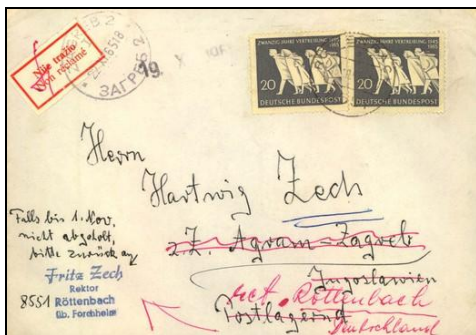 Nije tražio
Non réclamé
ЗАГРЕБ 2
19. X
ZWANZIG JAHRE VERTREIBUNG 1945
1965
20
DEUTSCHE BUNDESPOST
ZWANZIG JAHRE VERTREIBUNG 1945
1965
20
DEUTSCHE BUNDESPOST
Herrn
Hartwig Zech
z.Z. Agram-Zagreb
Jugoslawien
Postlagernd
ret. Röttenbach
Deutschland
Falls bis 1. Nov.
nicht abgeholt,
bitte zurück an
Fritz Zech
Rektor
8551 Röttenbach
üb. Forchheim